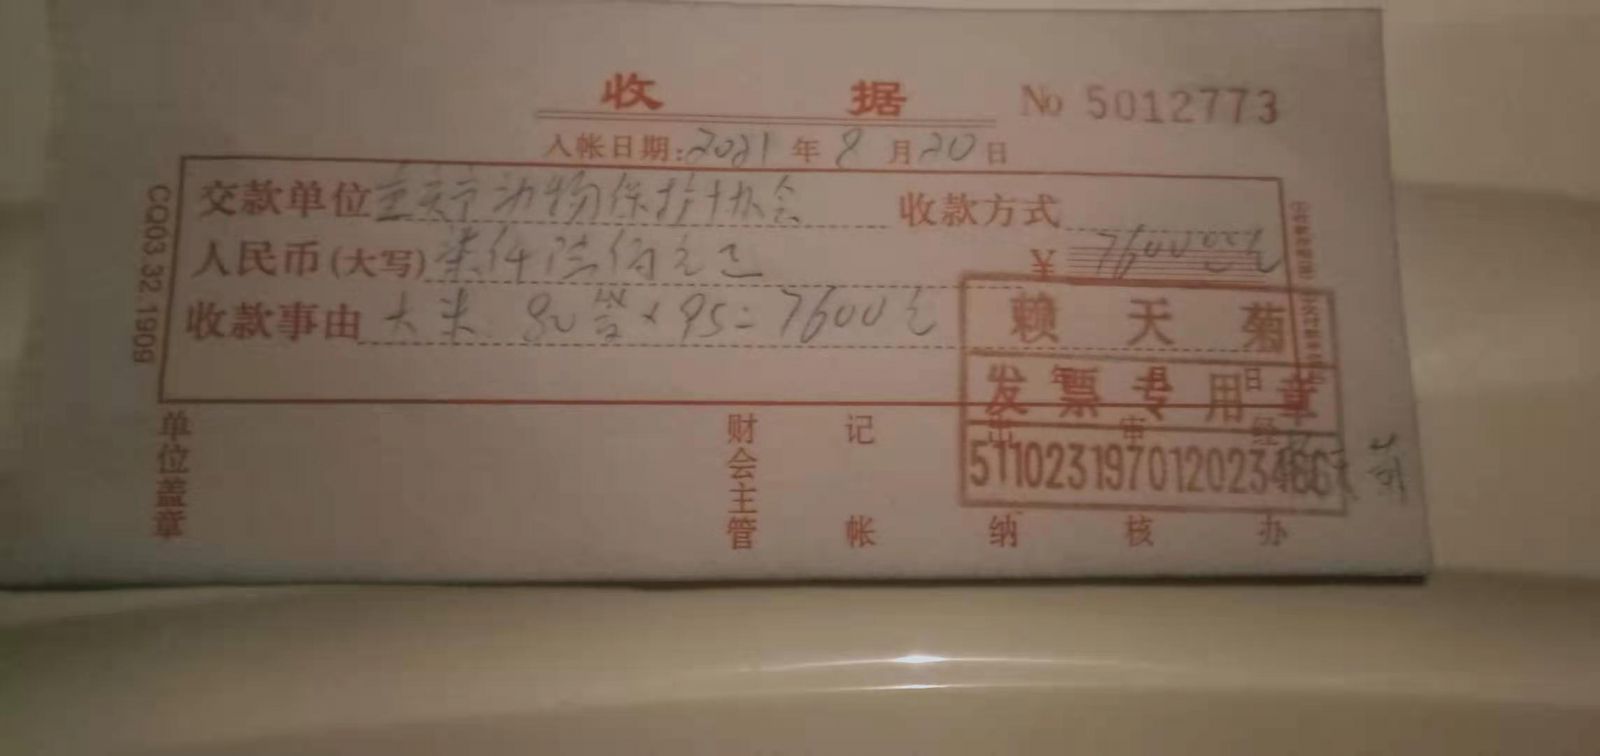 收 据 No 5012773
入帐日期:2021年8月20日
交款单位 重庆市动物保护协会 收款方式
人民币(大写) 柒仟陆佰元正 ¥ 7600.00元
收款事由 大米 80袋×95=7600元
赖天菊
年 月 日
发票专用章
511023197012023466
单位盖章 财会主管 记帐 出纳 审核 经办
CQ03.32.1909